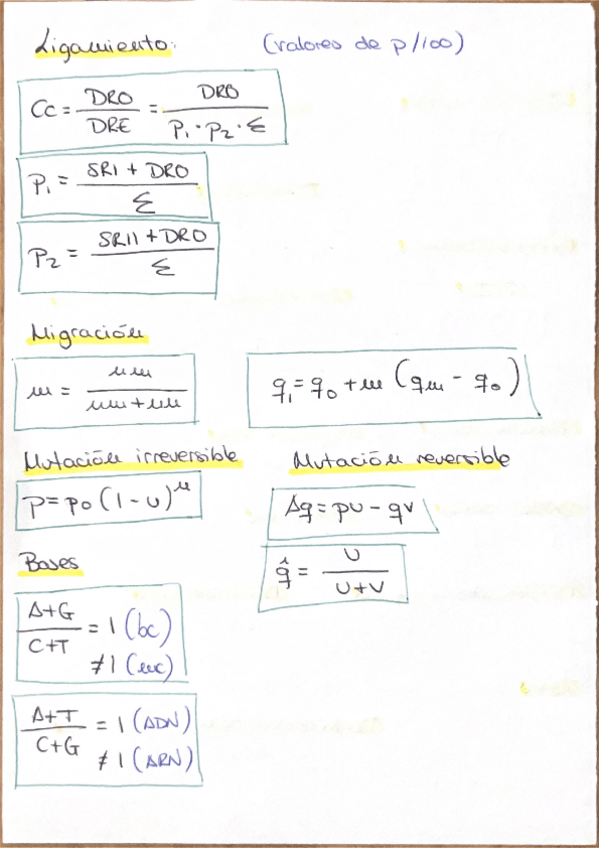 Ligamiento: (valores de p/100)
Cc = DRO/DRE = DRO/(P₁·P₂·Σ)
P₁ = (SRI + DRO)/Σ
P₂ = (SRII + DRO)/Σ
Migración
m = nm/(nm+nn) q₁ = q₀ + m (qm - q₀)
Mutación irreversible Mutación reversible
p = p₀ (1 - u)ⁿ Δq = pu - qv
Bases q̂ = u/(u+v)
(A+G)/(C+T) = 1 (bc)
≠ 1 (mc)
(A+T)/(C+G) = 1 (ADN)
≠ 1 (ARN)